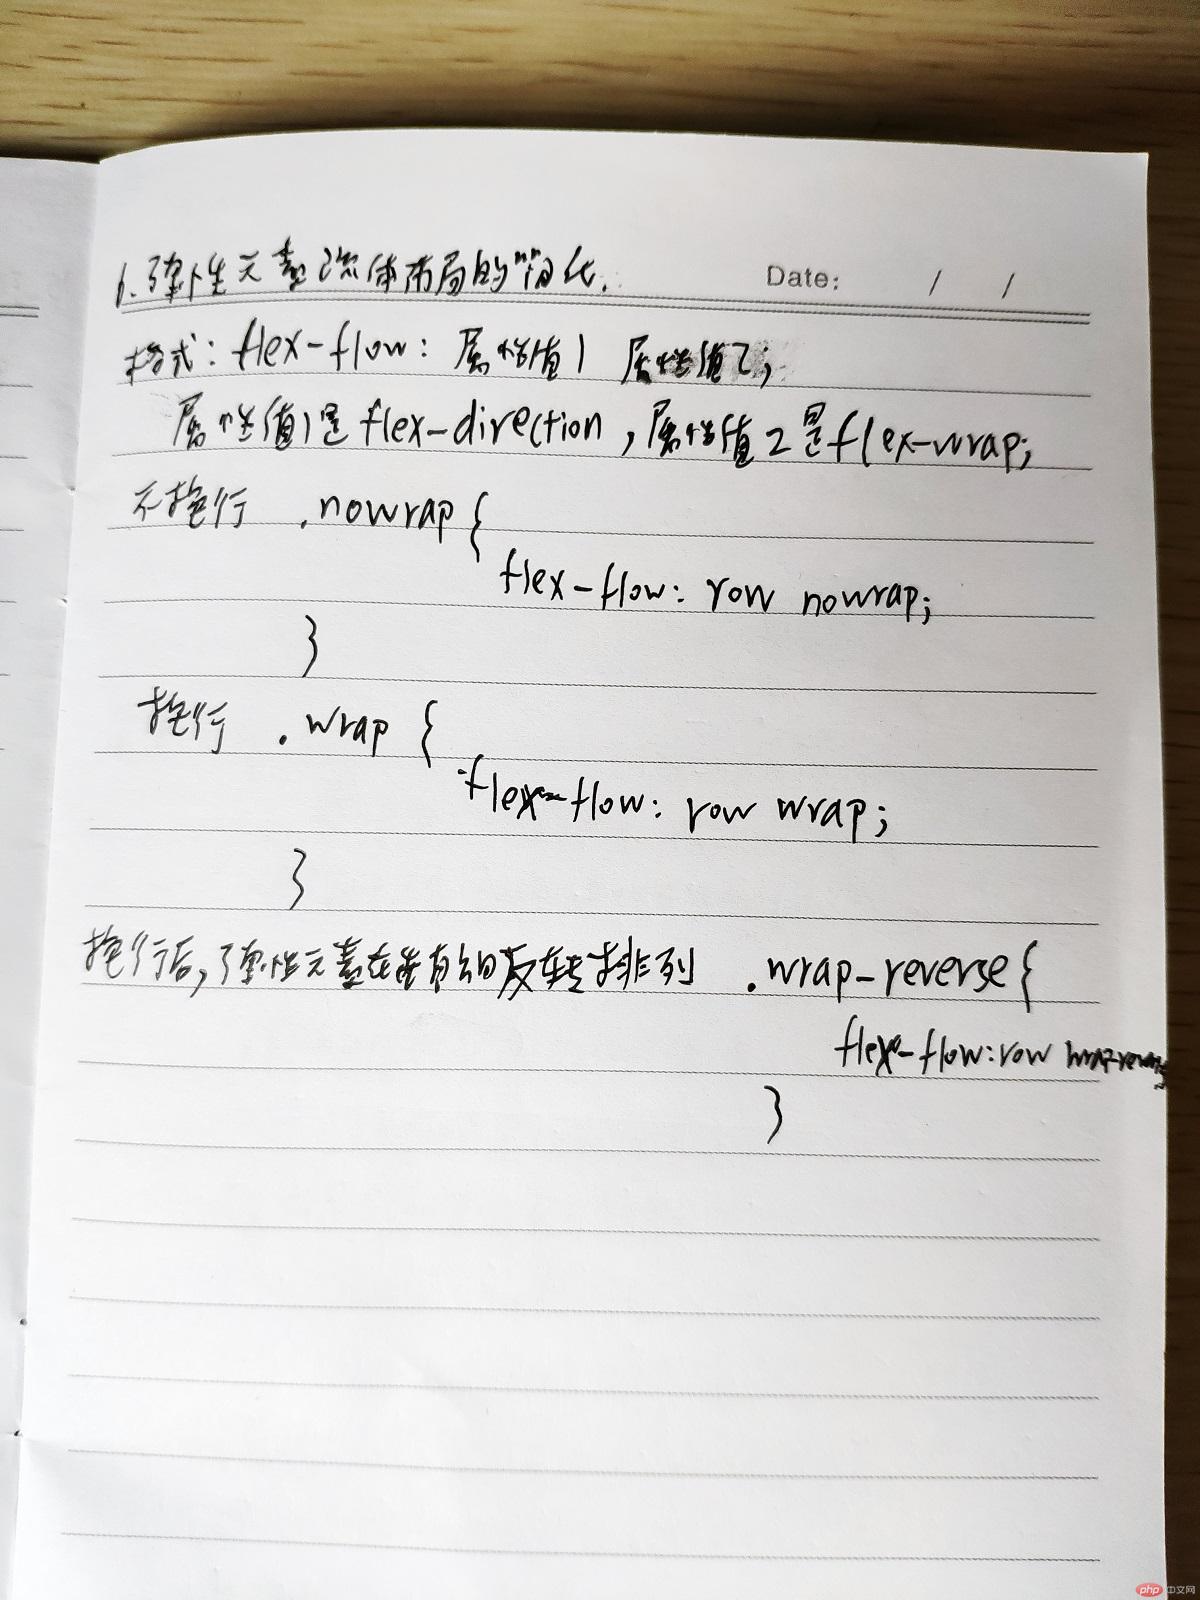 6.弹性元素流体布局的简化.
Date: / /
格式:flex-flow:属性值1 属性值2;
属性值1是flex-direction,属性值2是flex-wrap;
不换行 .nowrap{
flex-flow: row nowrap;
}
换行 .wrap {
flex-flow: row wrap;
}
换行后,弹性元素在垂直的反转排列 .wrap-reverse{
flex-flow:row wrap-reverse;
}
php 中文网